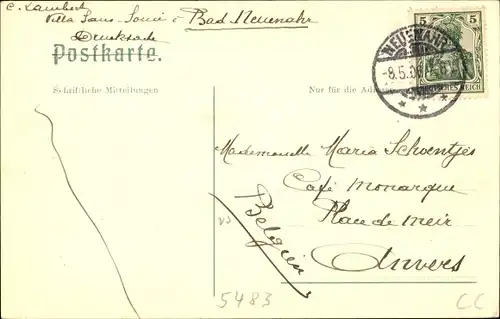 C. Lambert
Villa Sans-Souci à Bad Neuenahr
Drucksache
Postkarte.
Schriftliche Mitteilungen
Nur für die Adresse
5 5
NEUENAHR
-8.5.06
DEUTSCHES REICH
Mademoiselle Maria Schoentjes
Café Monarque
Place de Meir
Anvers
Belgien
5483
CC